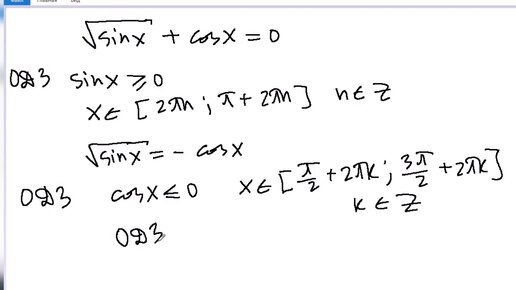 Файл Главная Вид
√sinx + cosx = 0
ОДЗ sinx ⩾ 0
x ∈ [2πn ; π + 2πn] n ∈ Z
√sinx = - cosx
ОДЗ cosx ≤ 0 x ∈ [π/2 + 2πk ; 3π/2 + 2πk]
k ∈ Z
ОДЗ